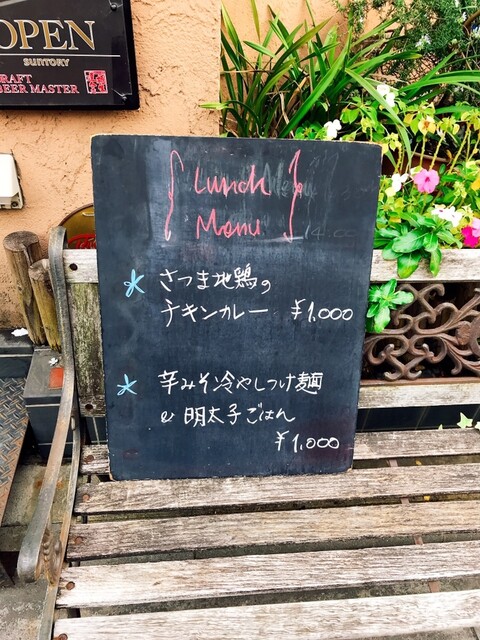 OPEN
SUNTORY
CRAFT
BEER MASTER
Lunch
Menu
さつま地鶏の
チキンカレー ¥1,000
辛みそ冷やしつけ麺
& 明太子ごはん
¥1,000